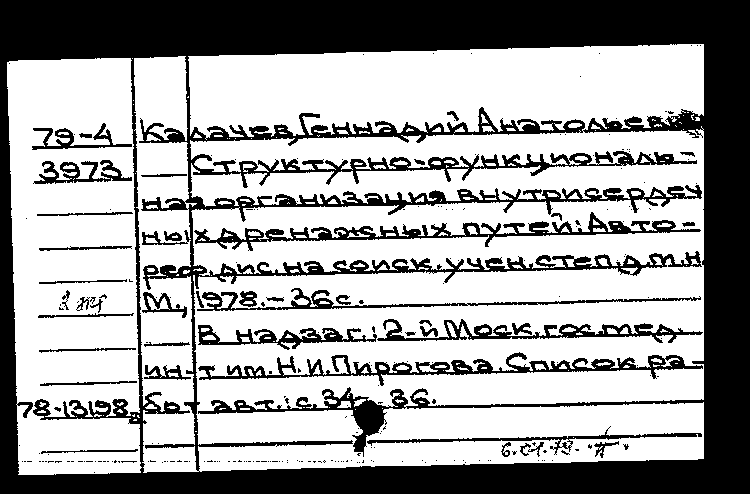 79-4 Калачев, Геннадий Анатольевич
3973 Структурно-функциональ-
ная организация внутрисердеч
ных дренажных путей: Авто-
реф. дис. на соиск. учен. степ. д.м.н.
2 экз М., 1978. - 36 с.
В надзаг.: 2-й Моск. гос. мед.
ин-т им. Н.И. Пирогова. Список ра-
78-13198 бот авт.: с. 34- 36.